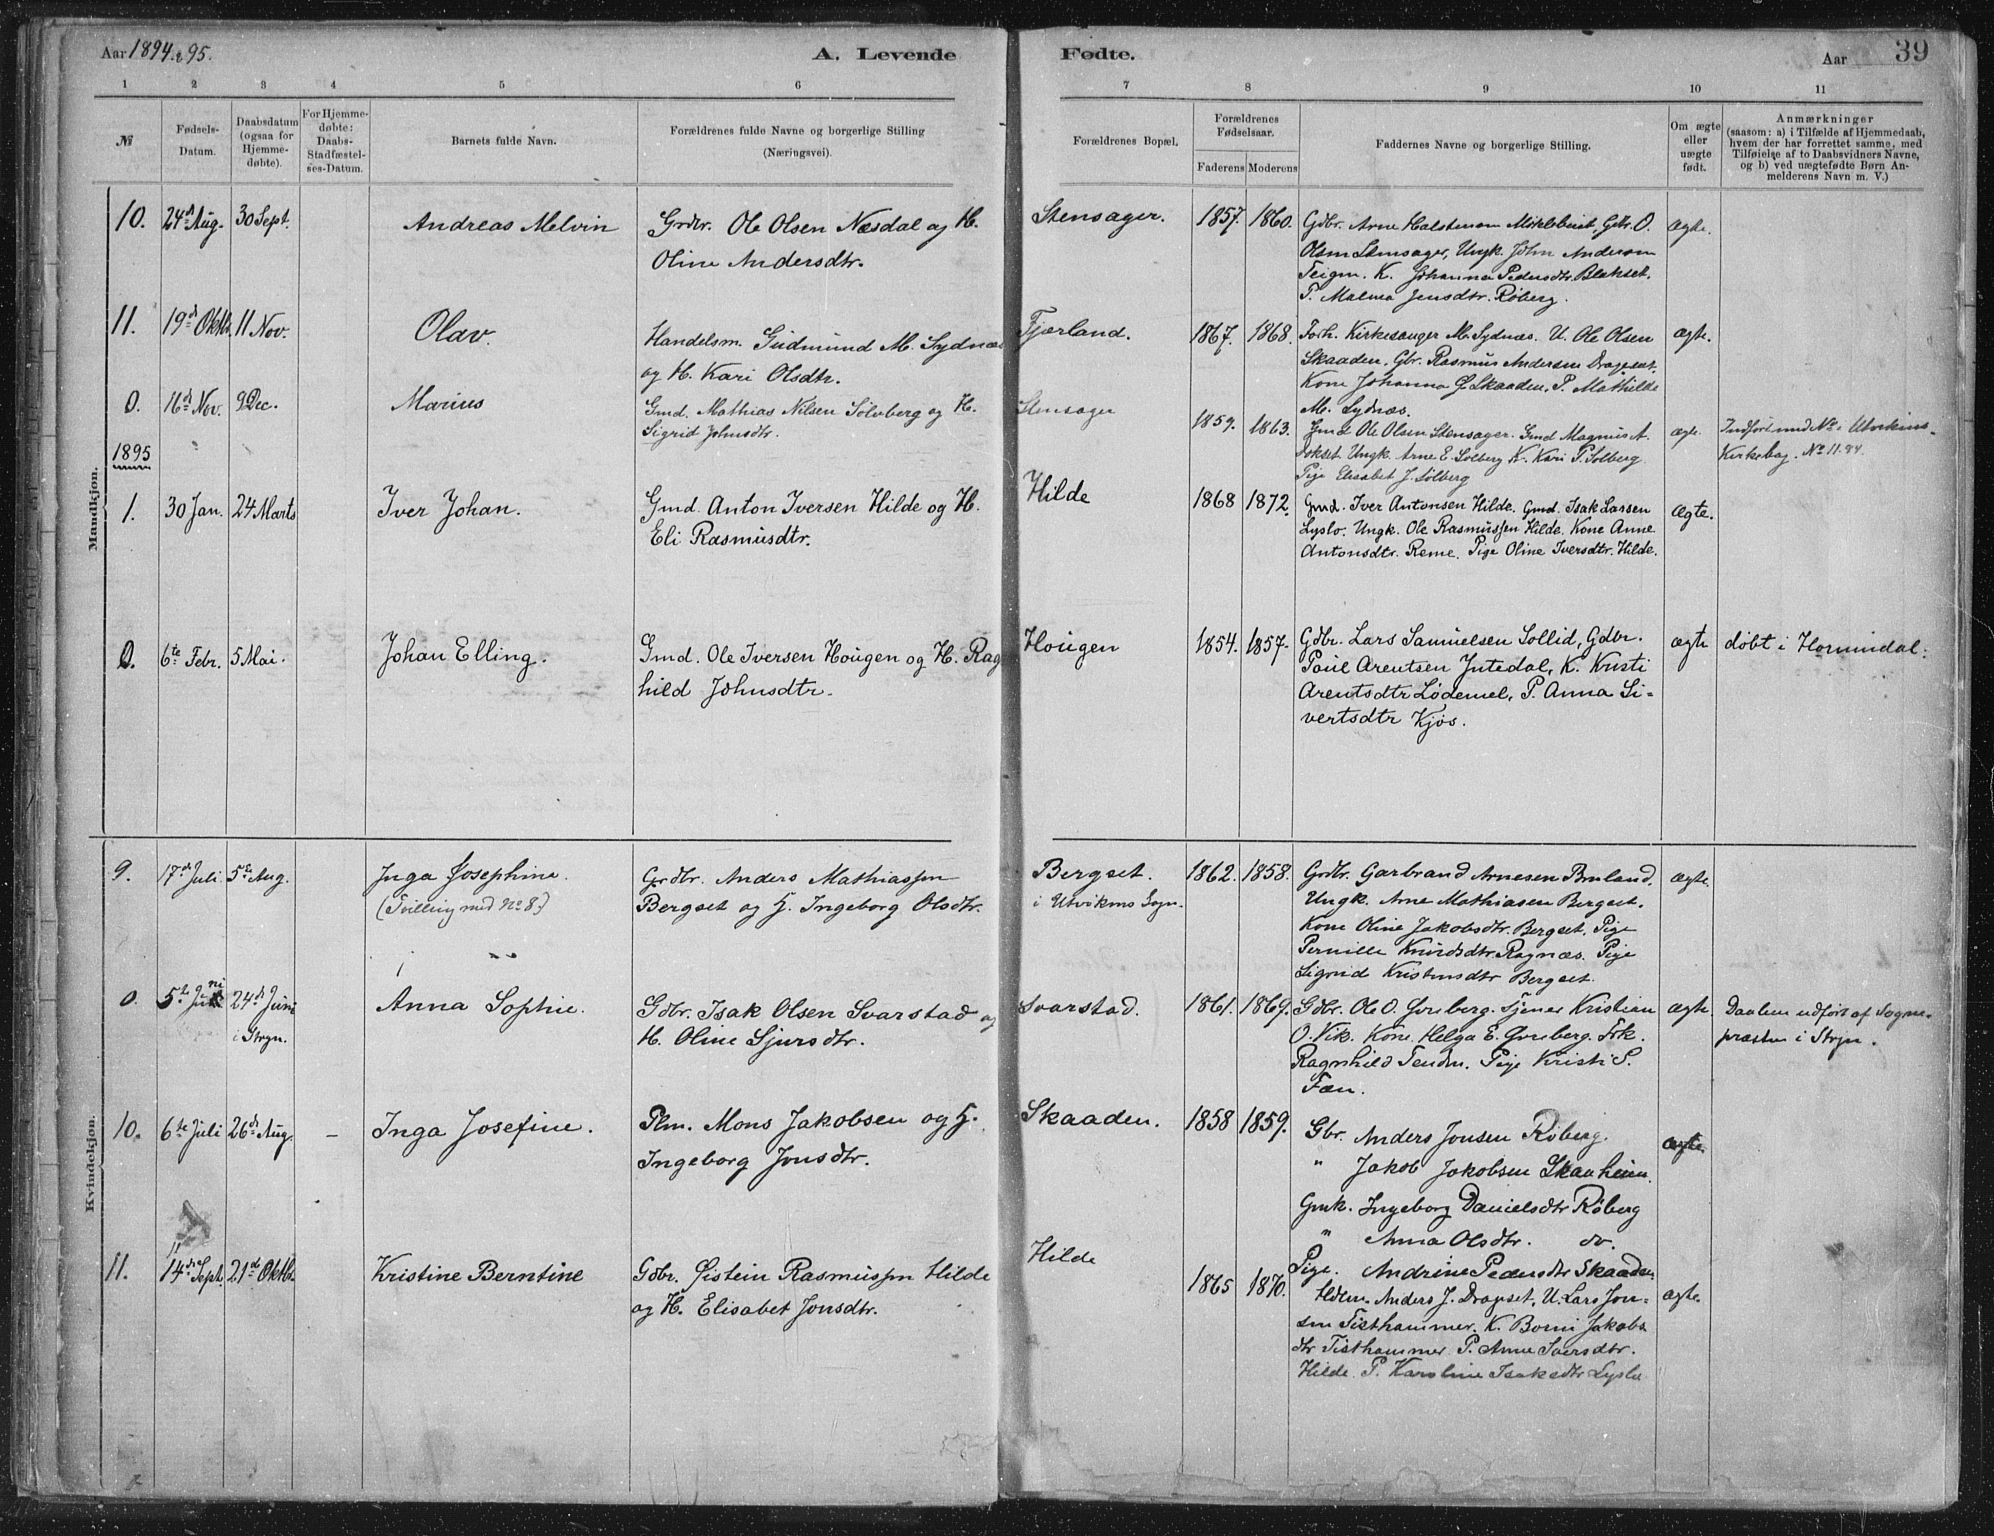 Aar 1894 & 95.
A. Levende
Fødte.
Aar
39
1 2 3 4 5 6 7 8 9 10 11
№
Fødsels-Datum.
Daabsdatum (ogsaa for Hjemme-døbte).
For Hjemme-døbte: Daabs-Stadfæstel-ses-Datum.
Barnets fulde Navn.
Forældrenes fulde Navne og borgerlige Stilling (Næringsvei).
Forældrenes Bopæl.
Forældrenes Fødselsaar.
Faderens Moderens
Faddernes Navne og borgerlige Stilling.
Om ægte eller uægte født.
Anmærkninger
(saasom: a) i Tilfælde af Hjemmedaab,
hvem der har forrettet samme, med
Tilføielse af to Daabsvidners Navne,
og b) ved uægtefødte Børn An-
melderens Navn m. V.)
Mandkjøn.
10. 24de Aug. 30 Sept. Andreas Melvin Grdbr. Ole Olsen Næsdal og H. Stensager. 1857. 1860. Gdbr. Arne Halstensen Myklebust, Gbr. O. ægte.
Oline Andersdtr.
Olsen Stensager, Ungk. John Andersen
Teigen. K. Johanna Pedersdtr. Blakset.
P. Malena Jensdtr. Røberg.
11. 19de Oktb. 11 Nov. Olav. Handelsm. Gudmund M. Sydnæs Fjærland. 1867. 1868. Forh. Kirkesanger M. Sydnæs. U. Ole Olsen ægte.
og H. Kari Olsdtr.
Skaaden. Gbr. Rasmus Andersen Drageset,
Kone Johanna Skaaden. P. Mathilde
M. Sydnæs.
0. 16de Nov. 9 Dec. Marius Gmd. Mathias Nilsen Sölvberg og H. Stensager 1859. 1863. Gmd Ole Olsen Stensager. Gmd Magnus A. ægte. Indført med No i Utvikens
Sigrid Johnsdtr.
Ungk. Arne E. Solberg K. Kari P. Solberg Kirkebog. No 11. 94.
Pige Elisabet J. Solberg
1895
1. 30 Jan. 24 Marts Iver Johan. Gmd. Anton Iversen Hilde og H. Hilde 1868 1872. Gmd. Iver Antonsen Hilde. Gmd. Isak Larsen ægte.
Eli Rasmusdtr.
Lyslo. Ungk. Ole Rasmussen Hilde. Kone Anne
Antonsdtr. Reme. Pige Oline Iversdtr. Hilde.
0. 6te Febr. 5 Mai. Johan Elling. Gmd. Ole Iversen Hougen og H. Rag Hougen 1854. 1857. Gdbr. Lars Samuelsen Sollid, Gdbr. ægte døbt i Hornindal.
hild Johnsdtr.
Poul Arentsen Ytedal, K. Kristi
Arentsdtr Lødemel, P. Anna Si-
vertsdtr Kjøs.
Kvindekjøn.
9. 17de Juli 5te Aug. Inga Josephine. Grdbr. Anders Mathiassen Bergset. 1862. 1858. Grdbr. Garbrand Arnesen Bruland, ægte.
(Tvilling med No 8.) Bergset og H. Ingeborg Olsdtr. i Utvikens Sogn. Ungk. Arne Mathiasen Bergset.
Kone Oline Jakobsdtr. Bergset. Pige
Pernille Knudsdtr. Ragnæs. Pige
Sigrid Kristensdtr Bergset.
0. 5te Juni 24de Juni Anna Sophie. Gdbr. Isak Olsen Svarstad og Svarstad. 1861. 1869. Gdbr. Ole O. Tjener Kristian ægte. Daaben udført af Sogne-
i Stryn. H. Oline Sjursdtr. O. Vik. Kone Helga E. Frk. præsten i Stryn.
Ragnhild Tenden. Pige Kristi S.
Fæn.
10. 6te Juli 26de Aug. – Inga Josefine. Plm. Mons Jakobsen og H. Skaaden. 1858 1859. Gbr. Anders Jonsen Røberg. ægte.
Ingeborg Jonsdtr.
" Jakob Jakobsen Skaaheim.
Gmk. Ingeborg Danielsdtr Røberg
" Anna Olsdtr. do.
Pige. Andrine Pedersdtr Skaaden.
11. 14de Sept. 21de Oktb. Kristine Berntine Gdbr. Øistein Rasmussen Hilde Hilde 1865 1870. Anders J. Dragset, U. Lars Jon- ægte.
og H. Elisabet Jonsdtr.
sen Tisthammer. K. Borni Jakobs
dtr Tisthammer P. Anne Iversdtr.
Hilde. P. Karoline Isaksdtr Lyslo